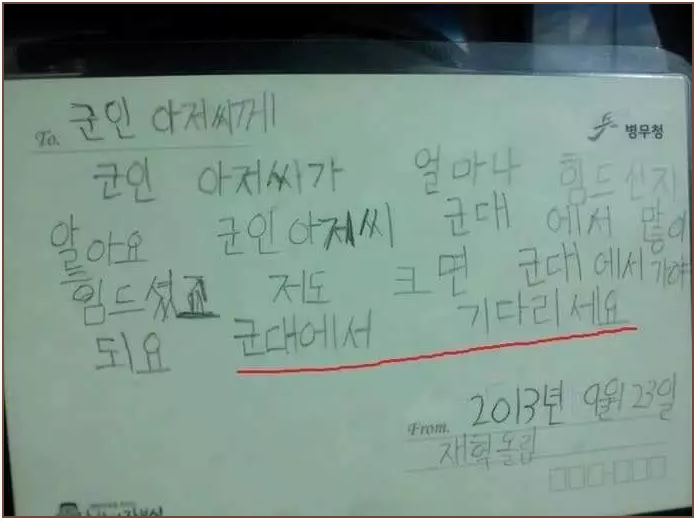 To. 군인 아저씨께
병무청
군인 아저씨가 얼마나 힘드신지
알아요 군인아저씨 군대 에서 많이
힘드셨죠 저도 크면 군대에서 가야
되요 군대에서 기다리세요
2013년 9월 23일
From. 재혁올림